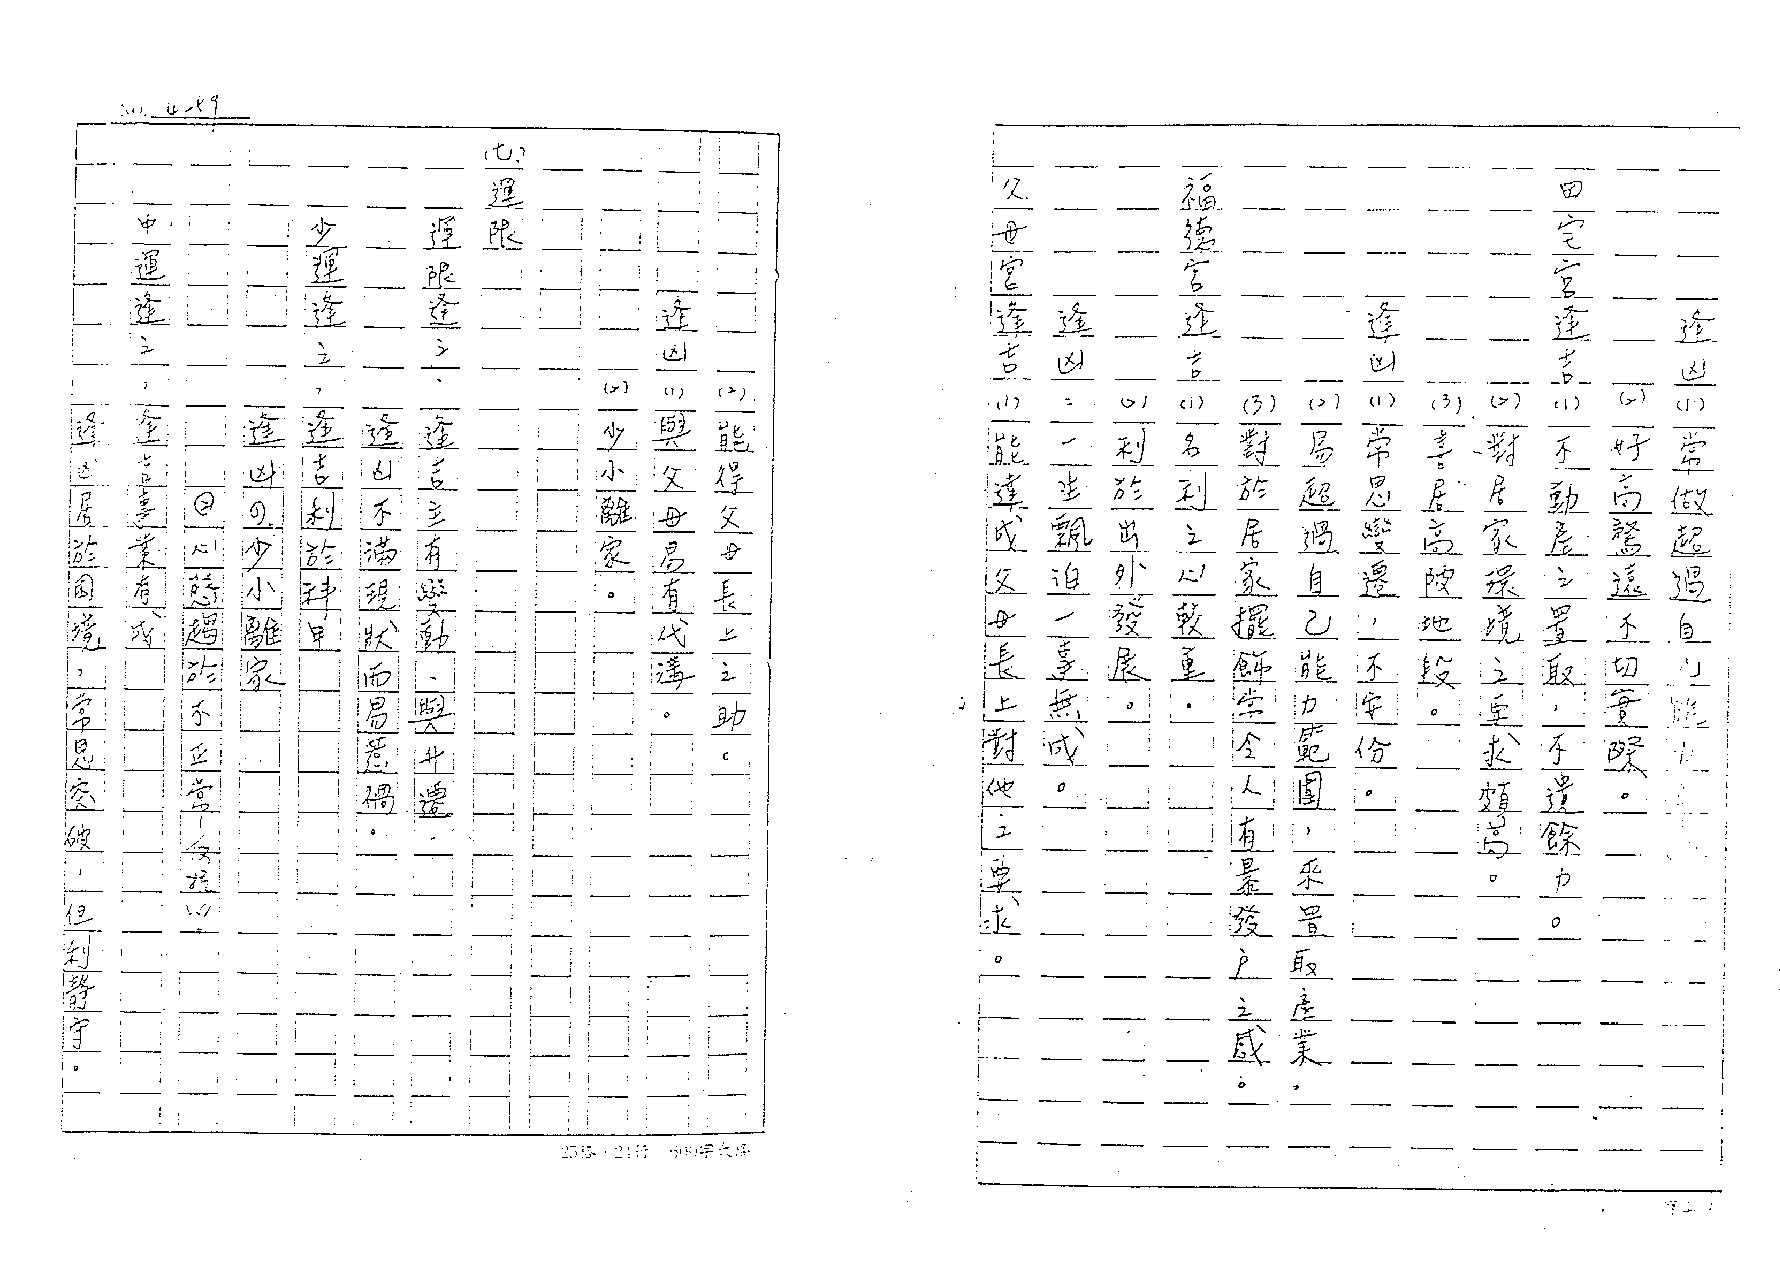 逢凶(1)常做超過自己能力
(2)好高騖遠不切實際。
田宅宮逢吉(1)不動產之置取，不遺餘力。
(2)對居家環境之要求頗高。
(3)喜居高陂地段。
逢凶(1)常思變遷，不安份。
(2)易超過自己能力範圍，來置取產業。
(3)對於居家擺飾常令人有暴發戶之感。
福德宮逢吉(1)名利之心較重。
(2)利於出外發展。
逢凶：一生飄泊一事無成。
父母宮逢吉(1)能達成父母長上對他之要求。
NO. 4-89
(2)能得父母長上之助。
逢凶(1)與父母易有代溝。
(2)少小離家。
(七)運限
運限逢之、逢吉主有變動、與升遷。
逢凶不滿現狀而易惹禍。
少運逢之，逢吉利於科甲
逢凶の少小離家
㊁心態趨於不正常－反抗心。
中運逢之，逢吉事業有成
逢凶居於困境，常思突破，但利靜守。
25×24= 600字稿紙